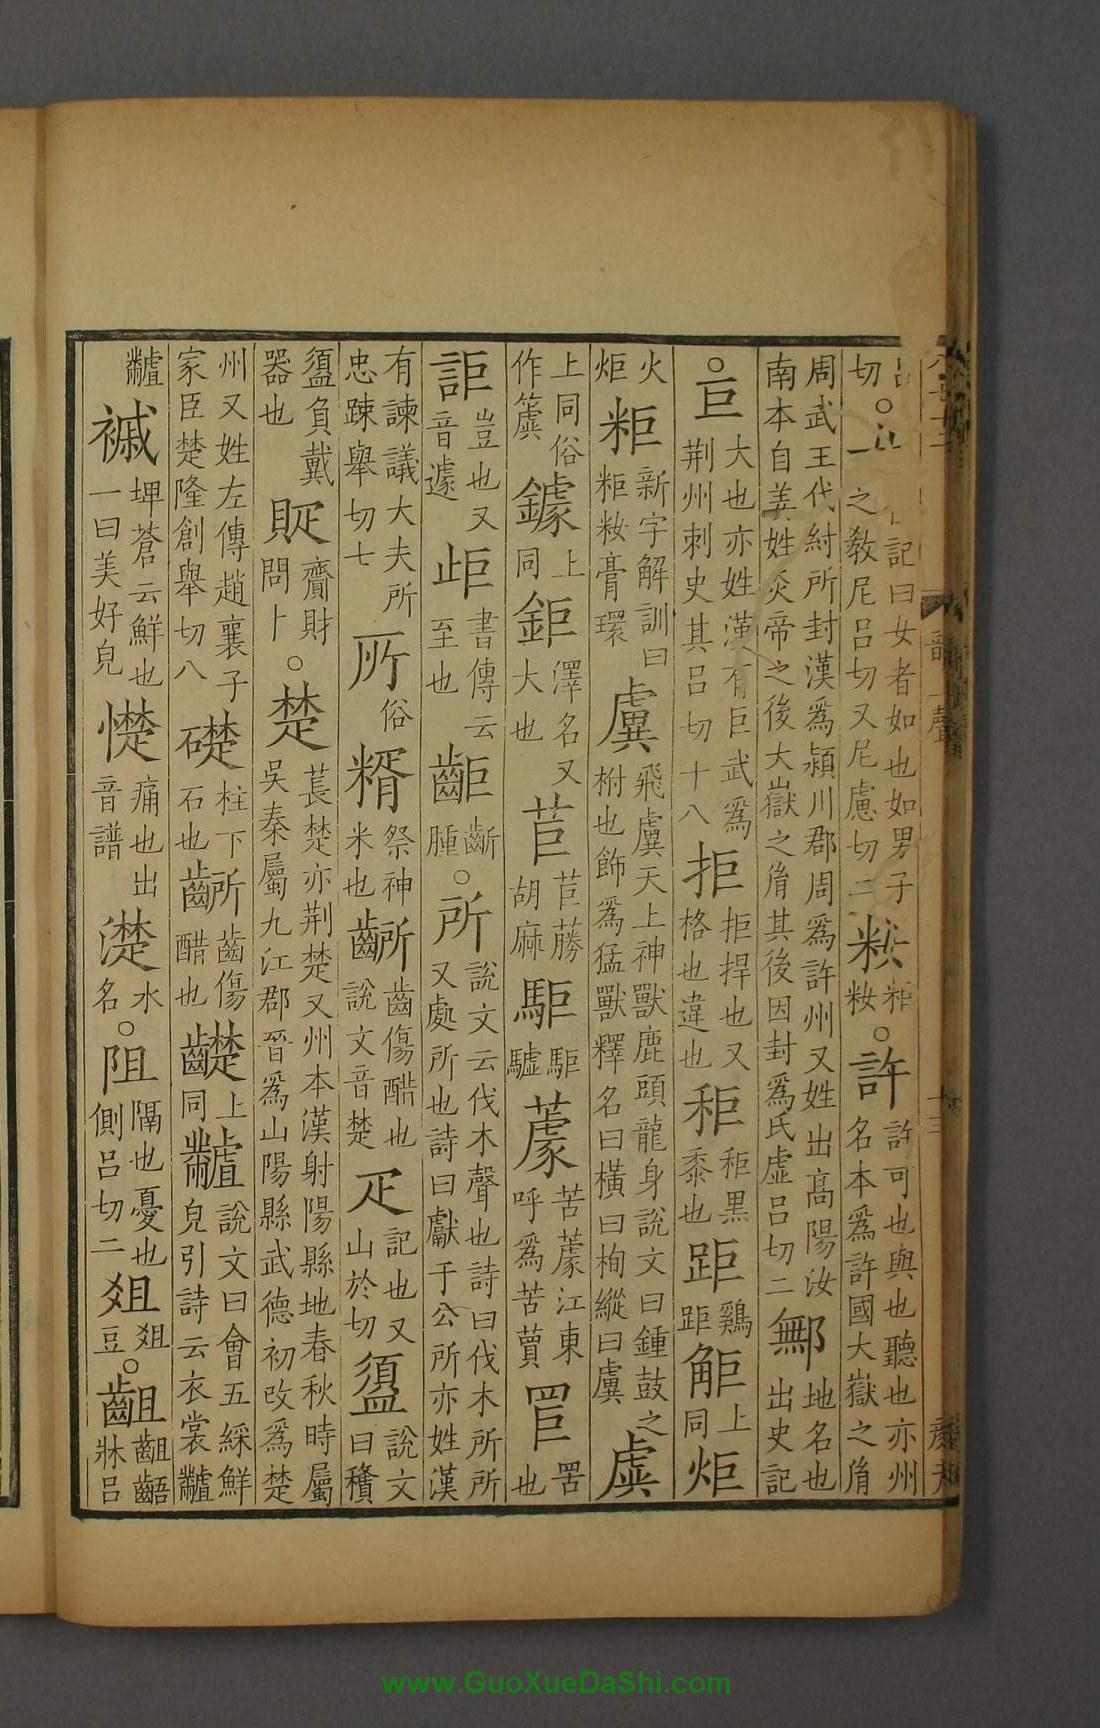 記曰女者如也如男子切○一之敎尼吕切又尼慮切二籹粔籹○許許可也與也聽也亦州名本爲許國大嶽之胤
周武王代紂所封漢爲潁川郡周爲許州又姓出高陽汝南本自姜姓炎帝之後大嶽之胤其後因封爲氏虛吕切二鄦地名也出史記
○巨大也亦姓漢有巨武爲荆州刺史其吕切十八拒拒捍也又格也違也秬秬黑黍也距鷄距䶙上同炬
火炬粔新字解訓曰粔籹膏環虡飛虡天上神獸鹿頭龍身說文曰鍾鼓之柎也飾爲猛獸釋名曰橫曰栒縱曰虡虡
上同俗作簴鐻上同鉅澤名又大也苣苣藤胡麻駏駏驉蘧苦蘧江東呼爲苦蕒罝罟也
詎豈也又音遽岠書傳云至也齟齗腫○所說文云伐木聲也詩曰伐木所所又處所也詩曰獻于公所亦姓漢
有諫議大夫所忠踈舉切七所俗糈祭神米也齭齒傷醋也說文音楚疋記也又山於切䀠說文曰𥢶
䀠負戴器也䝪齎財問卜○楚萇楚亦荆楚又州本漢射陽縣地春秋時屬吳秦屬九江郡晉爲山陽縣武德初改爲楚
州又姓左傳趙襄子家臣楚隆創舉切八礎柱下石也齭齒傷醋也齼上同𪓐說文曰會五綵鮮皃引詩云衣裳𪓐
𪓐𧝊埤蒼云鮮也一曰美好皃憷痛也出音譜濋水名○阻隔也憂也側吕切二俎俎豆○齟齟齬牀吕
www.GuoXueDaShi.com